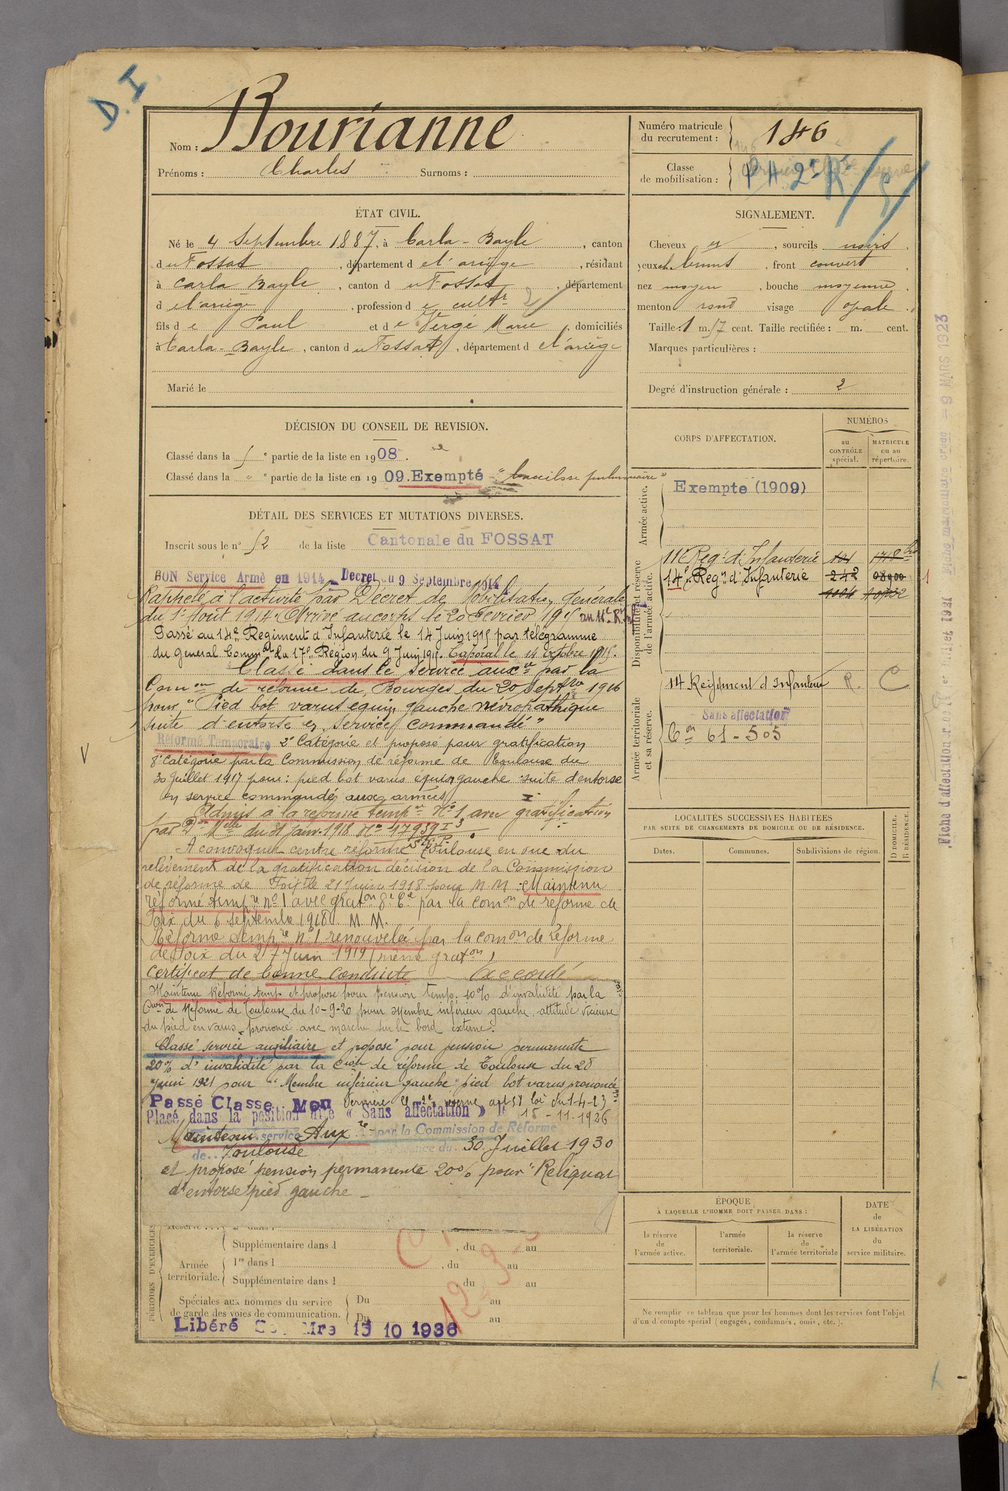 D.I
Nom : Bourianne
Prénoms : Charles Surnoms :
Numéro matricule du recrutement : 146
Classe de mobilisation : PA 2e R
ÉTAT CIVIL.
Né le 4 Septembre 1887, à Carla-Bayle, canton
du Fossat, département de l'ariège, résidant
à Carla Bayle, canton du Fossat, département
de l'ariège, profession de cultr
fils de Paul et de Vergé Marie, domiciliés
à Carla-Bayle, canton du Fossat, département de l'ariège
Marié le
SIGNALEMENT.
Cheveux, sourcils noirs
yeux, front couvert
nez moyen, bouche moyenne
menton rond visage opale
Taille 1 m. 57 cent. Taille rectifiée : m. cent.
Marques particulières :
Degré d'instruction générale : 2
DÉCISION DU CONSEIL DE REVISION.
Classé dans la 5e partie de la liste en 1908.
Classé dans la " partie de la liste en 1909. Exempté
DÉTAIL DES SERVICES ET MUTATIONS DIVERSES.
Inscrit sous le n° 52 de la liste Cantonale du FOSSAT
BON Service Armé en 1914 Decret du 9 Septembre 1914
Rappelé à l'activité par Décret de Mobilisation Générale
du 1er Août 1914. Arrivé au corps le 20 Février 1915 au 11e R.I.
Passé au 14e Regiment d'Infanterie le 14 Juin 1915 par télégramme
du General Commdt la 17e Région du 9 Juin 1915. Caporal le 14 octobre 1915.
Classé dans le service auxre par la
Comon de réforme de Bourges du 20 Septre 1916
pour "Pied bot varus equin gauche névropathique
suite d'entorse en service commandé"
Réformé Temporaire 2e Catégorie et proposé pour gratification
8e catégorie par la Commission de réforme de Toulouse du
30 Juillet 1917 pour : pied bot varus équin gauche suite d'entorse
en service commandé aux armées
Admis à la reforme tempre No 1 avec gratification
par Don Mlle du 21 janv. 1918 No 17939 I
A convoquer centre réforme Toulouse en vue du
relèvement de la gratification décision de la Commission
de réforme de Foix le 21 Juin 1918 pour M.M. Maintenu
réformé tempre no 1 avec graton 8e Cie par la comon de réforme de
Foix du 6 septembre 1918. M.M.
Réforme tempre no 1 renouvelée par la comon de réforme
de Foix du 27 Juin 1919 (même graton)
Certificat de bonne Conduite Accordé
Maintenu Réformé temp et proposé pour pension temp. 10% d'invalidité par la
Comon de Réforme de Toulouse du 10-9-20 pour membre inférieur gauche, attitude vicieuse
du pied en varus, prononcé avec marche sur le bord externe.
Classé service auxiliaire et proposé pour pension permanente
20% d'invalidité par la Cmon de réforme de Toulouse du 28
juin 1921 pour "Membre inférieur gauche : pied bot varus prononcé
Passé Classe Mon Dernière Cl 2e réserve art 58 loi du 1-4-23
Placé dans la position dite « Sans affectation » le 15-11-1926
Maintenu service Aux re par la Commission de Réforme
de Toulouse du 30 Juillet 1930
et proposé pension permanente 20% pour "Reliquat
d'entorse pied gauche -
CORPS D'AFFECTATION.
NUMÉROS
au CONTRÔLE spécial.
MATRICULE ou au répertoire.
Armée active.
Exempte (1909)
Disponibilité et réserve de l'armée active.
11e Regt d'Infanterie
14e Regt d'Infanterie
Armée territoriale et sa réserve.
14 Regiment d'Infanterie R. C
Sans affectation
Con 61-505
LOCALITÉS SUCCESSIVES HABITÉES
PAR SUITE DE CHANGEMENTS DE DOMICILE OU DE RÉSIDENCE.
Dates. Communes. Subdivisions de région. D DOMICILE. R RÉSIDENCE.
PÉRIODES D'EXERCICES
Supplémentaire dans l , du au
Armée territoriale.
1re dans l , du au
Supplémentaire dans l du au
Spéciales aux hommes du service de garde des voies de communication.
Du au
Du au
Libéré 15 10 1936
ÉPOQUE
À LAQUELLE L'HOMME DOIT PASSER DANS :
la réserve de l'armée active.
l'armée territoriale.
la réserve de l'armée territoriale
DATE de LA LIBÉRATION du service militaire.
Ne remplir ce tableau que pour les hommes dont les services font l'objet
d'un décompte spécial (engagés, condamnés, omis, etc.).